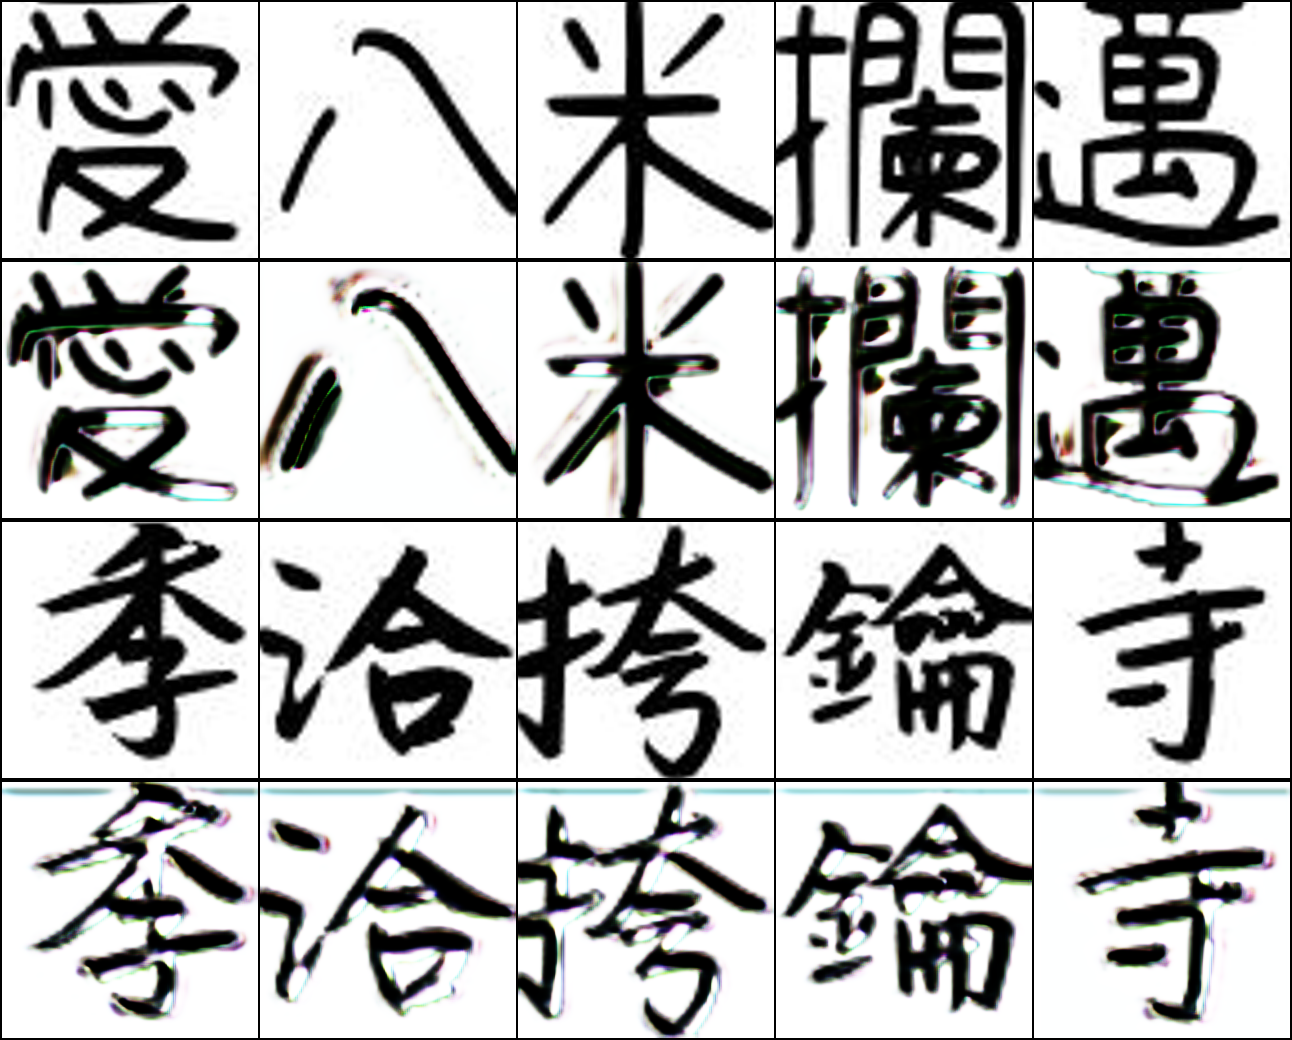 愛八米攔邁
愛八米攔邁
季洽挎鑰寺
季洽挎鑰寺